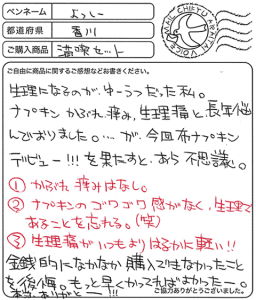 ペンネーム よっしー
都道府県 香川
ご購入商品 満喫セット
MAIL CHIEYU ARIMITAI VOICE
ご自由に商品に関するご感想などお書きください。
生理になるのが、ゆーうつだった私。
ナプキンかぶれ、痛み、生理痛と、長年悩
んでおりました。…が、今回布ナプキン
デビュー!!!を果たすと、あら不思議。
① かぶれ、痒みはなし。
② ナプキンのゴワゴワ感がなく、生理で
あることを忘れる。(笑)
③ 生理痛がいつもよりはるかに軽い!!
金銭的になかなか購入できなかったこと
を後悔。もっと早くかってればよかったー。
本当、ありがとー!!!
ご協力ありがとうございました。